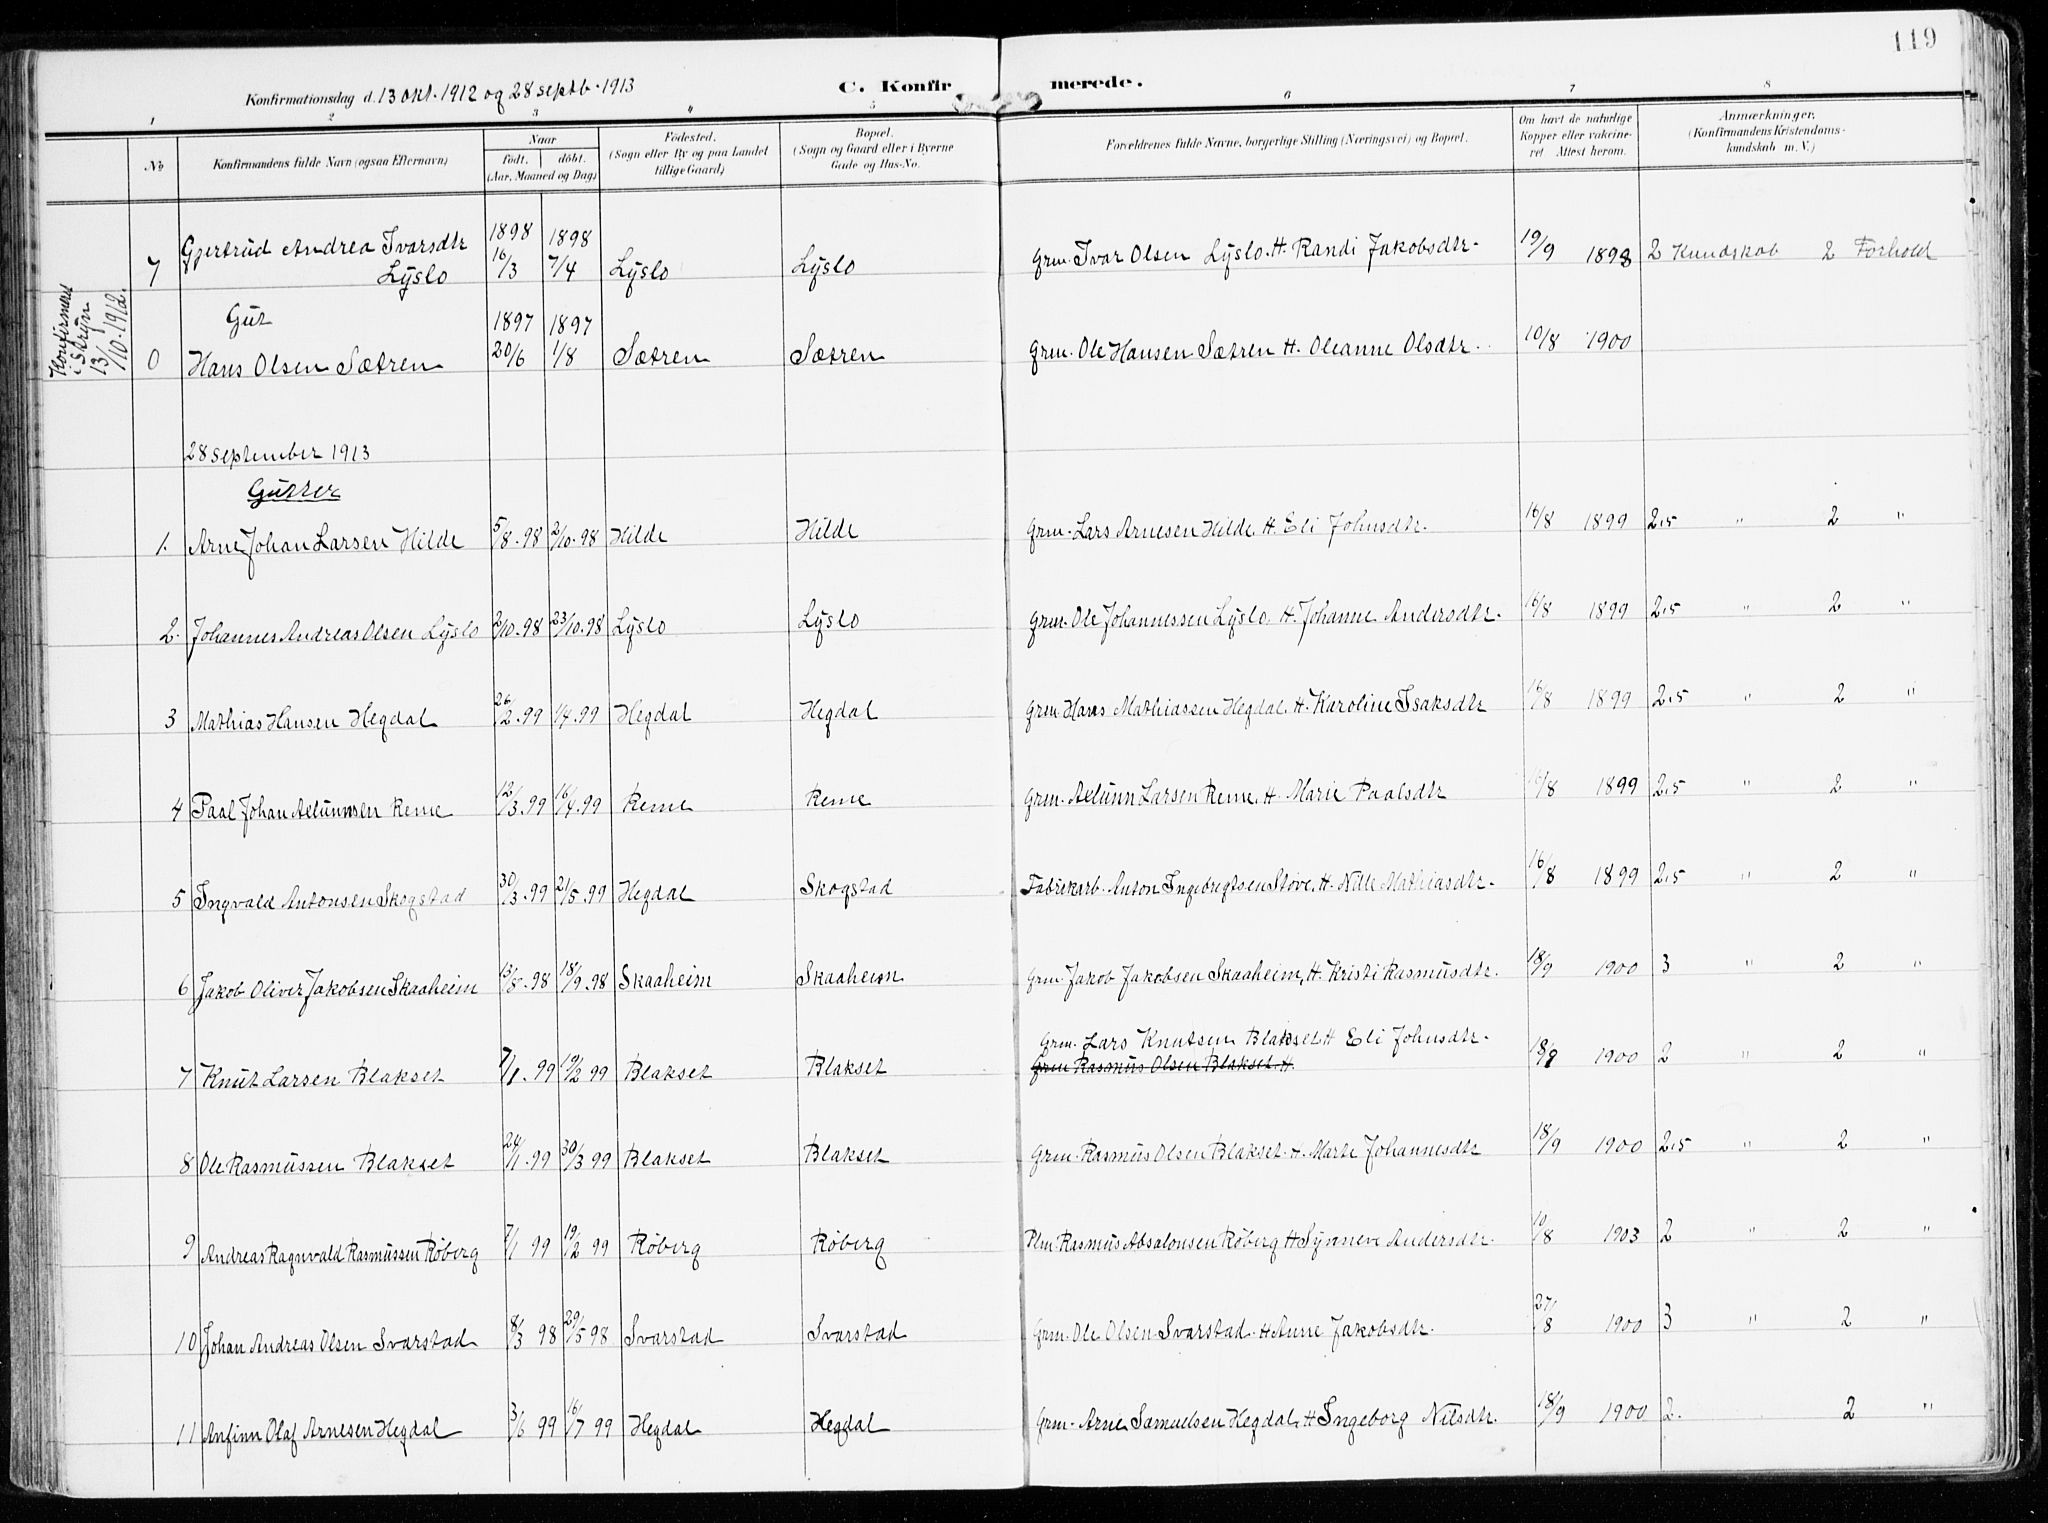 119
Konfirmationsdag d. 13 okt. 1912 og 28 septb. 1913 C. Konfirmerede.
1 2 3 4 5 6 7 8
No Konfirmandens fulde Navn (ogsaa Efternavn) Naar født. døbt. (Aar, Maaned og Dag) Fødested. (Sogn eller By og paa Landet tillige Gaard) Bopæl. (Sogn og Gaard eller i Byerne Gade og Hus-No. Forældrenes fulde Navne, borgerlige Stilling (Næringsvei) og Bopæl. Om havt de naturlige Kopper eller vakcineret. Attest herom. Anmærkninger. (Konfirmandens Kristendomskundskab m. V.)
7 Gjertrud Andrea Ivarsdtr Lyslo 1898 16/3 1898 7/4 Lyslo Lyslo Grm. Ivar Olsen Lyslo. H. Randi Jakobsdtr. 19/9 1898 2 Kundskab 2 Forhold
Konfirmeret i Stryn 13/10. 1912.
Gut
0 Hans Olsen Sætren 1897 20/6 1897 1/8 Sætren Sætren Grm. Ole Hansen Sætren H. Oleanne Olsdtr. 10/8 1900
28 september 1913
Gutter
1. Arne Johan Larsen Hilde 5/8.98 2/10.98 Hilde Hilde Grm. Lars Arnesen Hilde. H. Eli Johnsdtr. 16/8 1899 2,5 " 2 "
2. Johannes Andreas Olsen Lyslo 2/10.98 23/10.98 Lyslo Lyslo Grm. Ole Johannessen Lyslo. H. Johanne Andersdtr. 16/8 1899 2,5 " 2 "
3 Mathias Hansen Hegdal 26/2.99 1/4.99 Hegdal Hegdal Grm. Hans Mathiassen Hegdal. H. Karoline Isaksdtr 16/8 1899 2,5 " 2 "
4 Paal Johan Allunnsen Reme 12/3.99 16/4.99 Reme Reme Grm. Allunn Larsen Reme. H. Marie Paalsdtr 16/8 1899 2,5 " 2 "
5 Ingvald Antonsen Skogstad 30/3.99 21/5.99 Hegdal Skogstad Fabrikarb. Anton Ingebrigtsen Støve. H. Nille Mathiasdtr. 16/8 1899 2,5 " 2 "
6 Jakob Oliver Jakobsen Skaaheim 13/8.98 18/9.98 Skaaheim Skaaheim Grm. Jakob Jakobsen Skaaheim, H. Kristi Rasmusdtr. 18/9 1900 3 " 2 "
Grm. Lars Knutsen Blakset H Eli Johnsdtr.
7 Knut Larsen Blakset 7/1.99 19/2 99 Blakset Blakset Grm Rasmus Olsen Blakset. H. 18/9 1900 2 " 2 "
8 Ole Rasmussen Blakset 24/1.99 30/3 99 Blakset Blakset Grm. Rasmus Olsen Blakset. H. Marte Johannesdtr 18/9 1900 2,5 " 2 "
9 Andreas Ragnvald Rasmussen Røberg 7/1 99 19/2 99 Røberg Røberg Plm Rasmus Absalonsen Røberg H Synneve Andersdtr. 10/8 1903 2 " 2 "
10 Johan Andreas Olsen Svarstad 8/3 98 29/5 98 Svarstad Svarstad Grm. Ole Olsen Svarstad. H Anne Jakobsdtr. 27/8 1900 3 " 2 "
11 Anfinn Olaf Arnesen Hegdal 3/6 99 16/7 99 Hegdal Hegdal Grm. Arne Samuelsen Hegdal, H Ingeborg Nilsdtr. 18/9 1900 2. 2 "